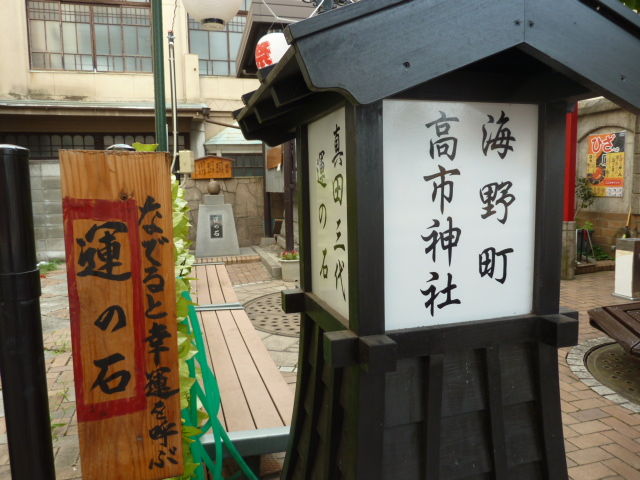 海野町
高市神社
真田三代
運の石
なでると幸運を呼ぶ
運の石
運の石
祭
ひざ